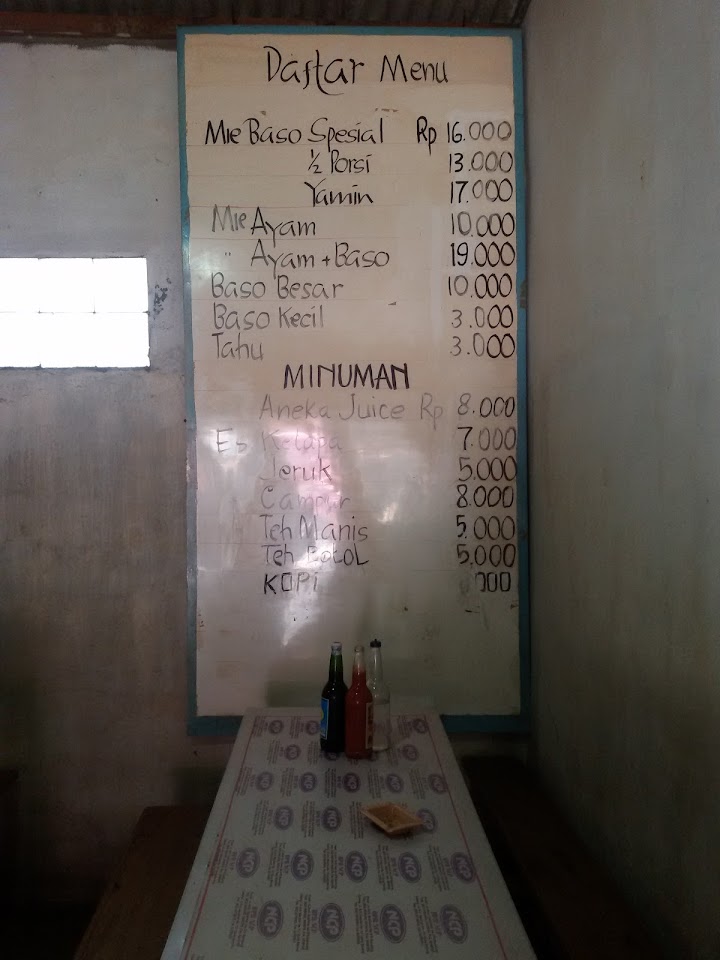 Daftar Menu
Mie Baso Spesial Rp 16.000
½ Porsi 13.000
Yamin 17.000
Mie Ayam 10.000
" Ayam + Baso 19.000
Baso Besar 10.000
Baso Kecil 3.000
Tahu 3.000
MINUMAN
Aneka Juice Rp 8.000
Es Kelapa 7.000
Jeruk 5.000
Campur 8.000
Teh Manis 5.000
Teh Botol 5.000
KOPI 000
NCP